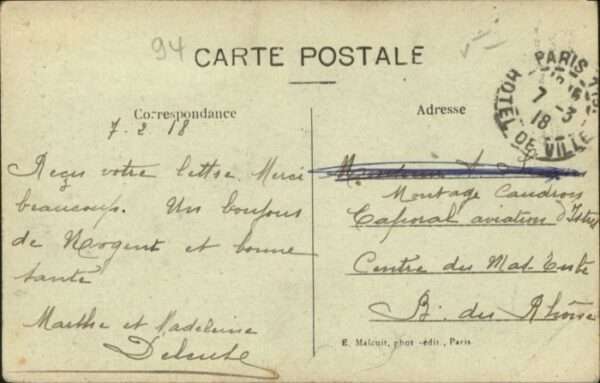 94
CARTE POSTALE
Correspondance
7. 2 18
Reçus votre lettre. Merci
beaucoup. Un bonjour
de Nogent et bonne
santé
Marthe et Madeleine
Adresse
Montage Caudron
Caporal aviation d'Istres
Centre des Mat.
B. des Rhône
E. Malcuit, phot-édit., Paris
PARIS
7 - 3
18
HOTEL DE VILLE